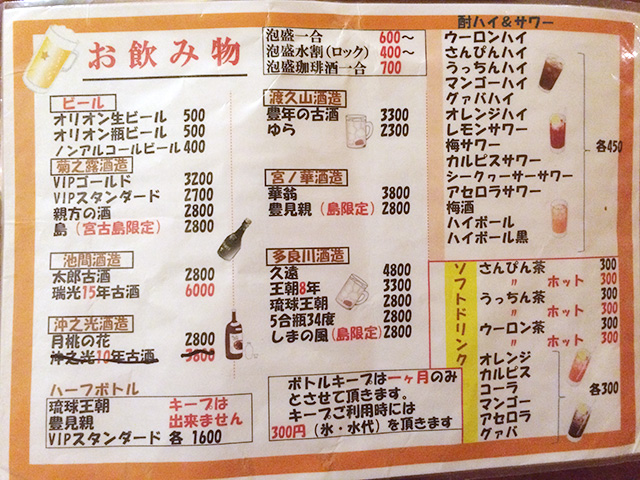 お飲み物
泡盛一合 600～
泡盛水割(ロック) 400～
泡盛珈琲酒一合 700
ビール
オリオン生ビール 500
オリオン瓶ビール 500
ノンアルコールビール 400
菊之露酒造
VIPゴールド 3200
VIPスタンダード 2700
親方の酒 2800
島（宮古島限定） 2800
池間酒造
太郎古酒 2800
瑞光15年古酒 6000
沖之光酒造
月桃の花 2800
沖之光10年古酒 3800
ハーフボトル
琉球王朝 キープは
豊見親 出来ません
VIPスタンダード 各 1600
渡久山酒造
豊年の古酒 3300
ゆら 2300
宮ノ華酒造
華翁 3800
豊見親（島限定） 2800
多良川酒造
久遠 4800
王朝8年 3300
琉球王朝 2800
5合瓶34度 2800
しまの風（島限定） 2800
ボトルキープは一ヶ月のみ
とさせて頂きます。
キープご利用時には
300円（氷・水代）を頂きます
酎ハイ＆サワー
ウーロンハイ
さんぴんハイ
うっちんハイ
マンゴーハイ
グァバハイ
オレンジハイ
レモンサワー
梅サワー
カルピスサワー
シークヮーサーサワー
アセロラサワー
梅酒
ハイボール
ハイボール黒
各450
ソフトドリンク
さんぴん茶 300
〃 ホット 300
うっちん茶 300
〃 ホット 300
ウーロン茶 300
〃 ホット 300
オレンジ
カルピス
コーラ
マンゴー
アセロラ
グァバ
各300